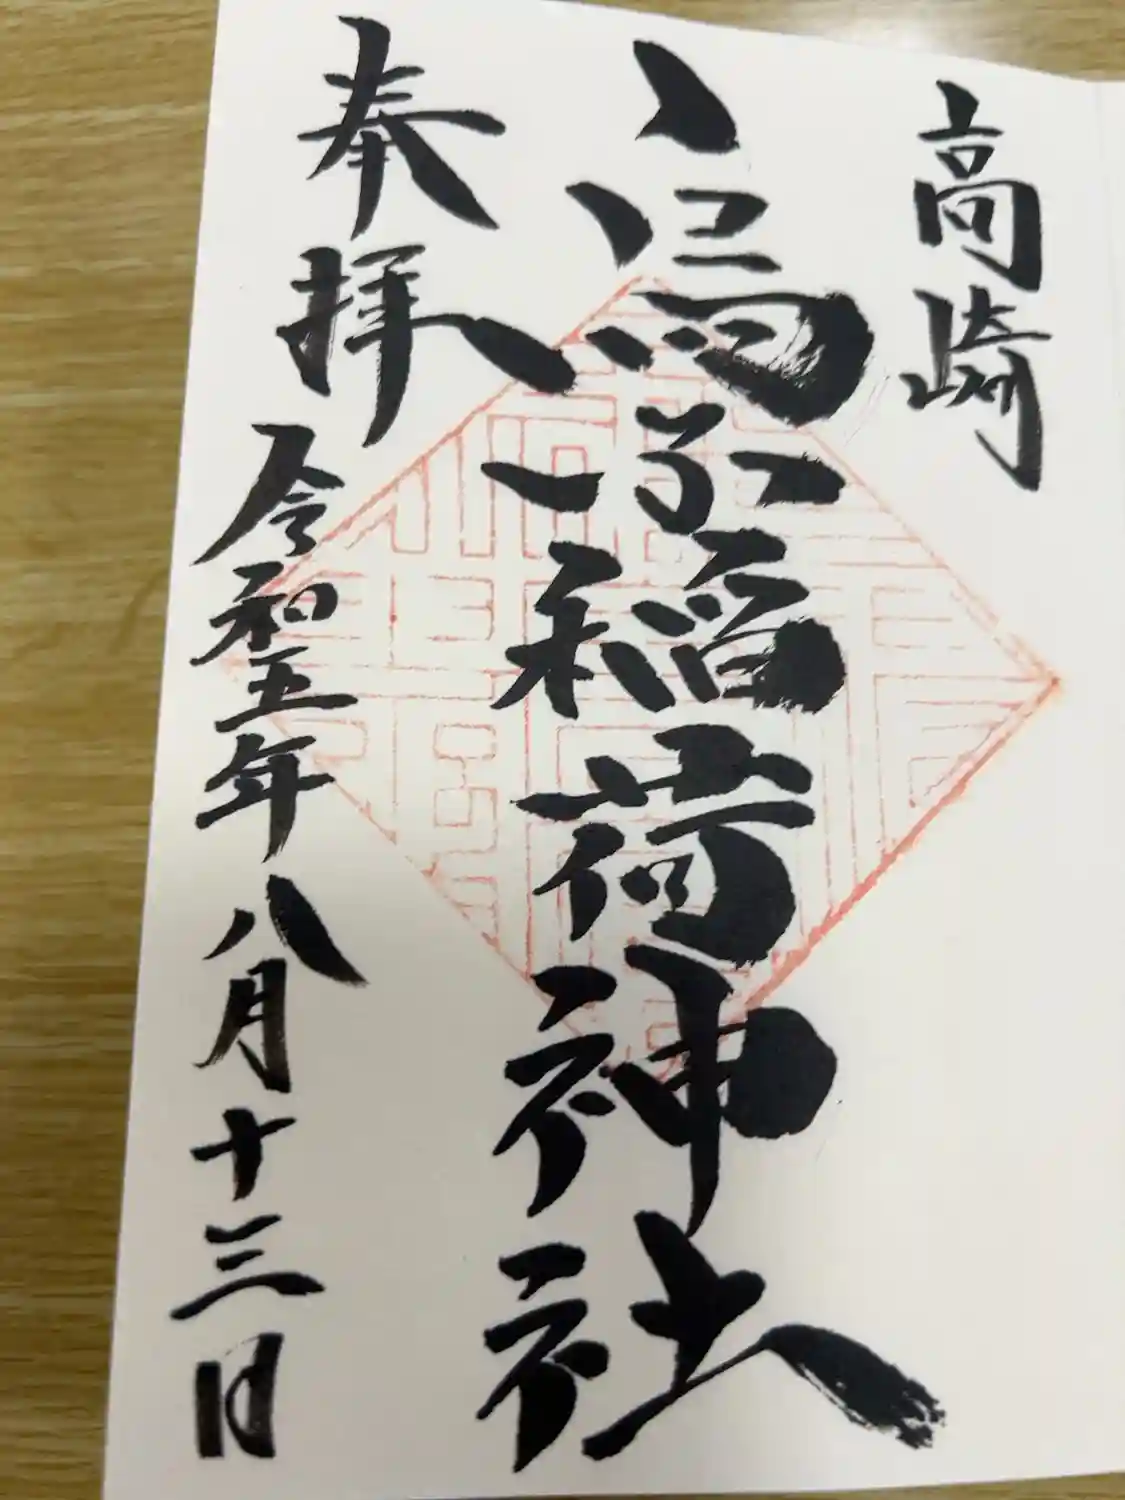 高崎
烏子稲荷神社
奉拝
令和五年八月十三日